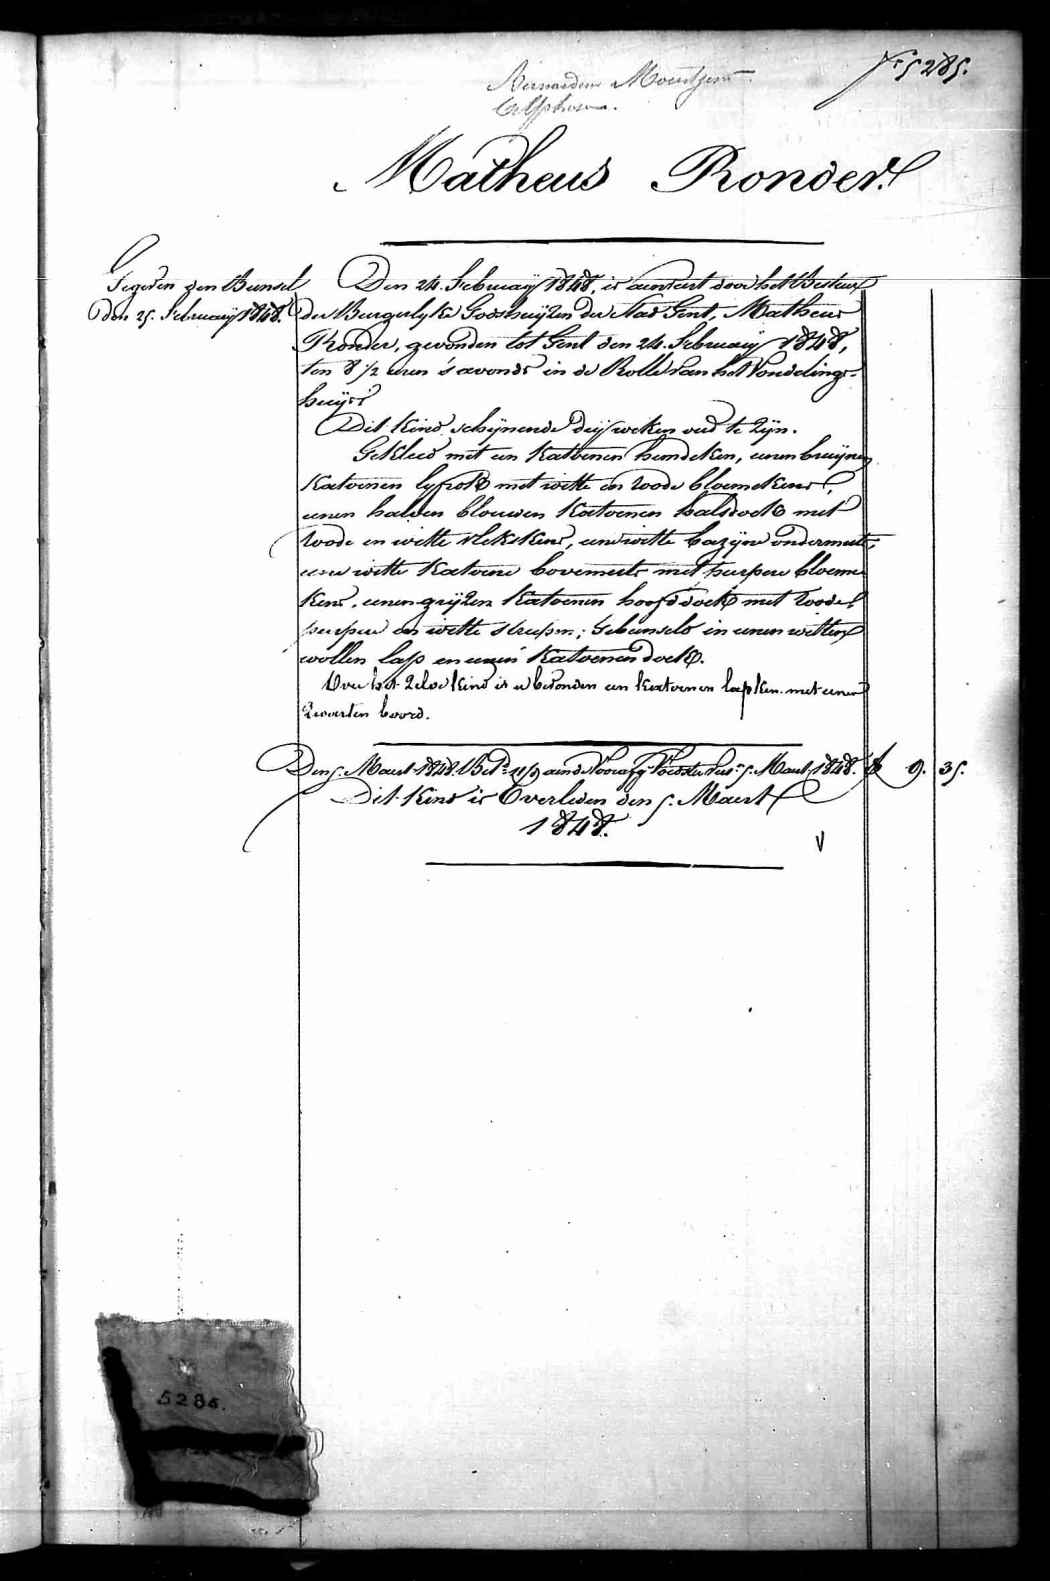 N.r 5285.
Matheus Ronder.
Gegeven den Bunsel
den 25. February 1848.
Den 24. February 1848, is aenveirt door het Bestuer
der Burgerlyke Godshuyzen der Stad Gent, Matheus
Ronder, gevonden tot Gent den 24. February 1848,
ten 8 1/2 uren s'avonds in de Rolle van het Vondelings-
huijs
Dit kind schijnende dry weken oud te zyn.
Gekleed met een Kattoenen hemdeken, eenen bruijnen
Katoenen lyfrok met witte en roode bloemekens,
eenen halven blouwen Katoenen halsdoek met
roode en witte vlekskens, eene witte bazyne ondermuts,
eene witte Katoene bovemuts met purpere bloeme
kens, eenen gryzen Katoenen hoofddoek met roode
purpere en witte streepen; Gebunseld in eenen witten
wollen lap en eenen Katoenen doek.
Over het zelve kind is er bevonden een katoenen lapken met eenen
zwarten boord.
Den 5. Maert 1848. Bet. 11/9 aen de Voedster 5. Maert 1848. 9. 35.
Dit Kind is Overleden den 5. Maert
1848.
V
5285.